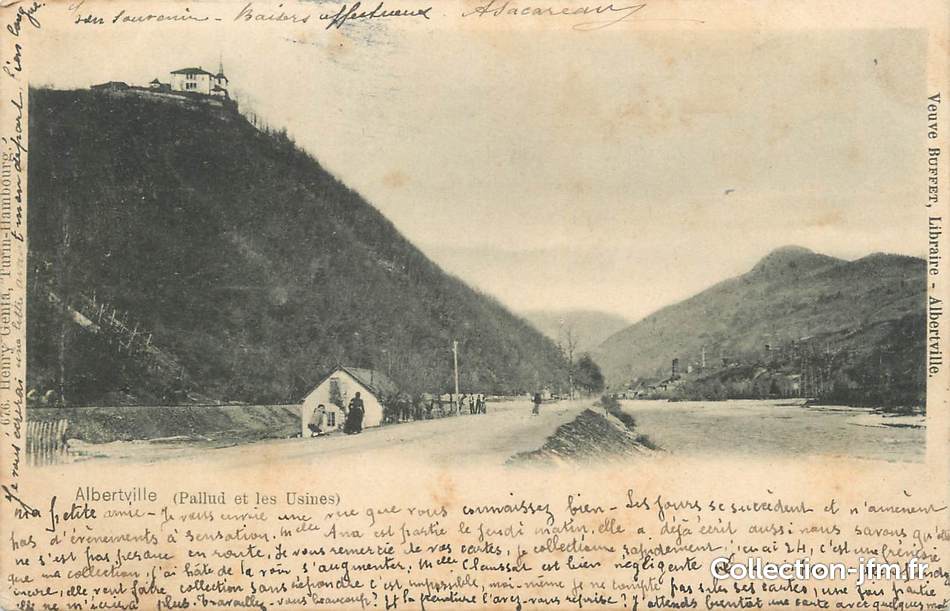 Bon souvenir - Baisers affectueux
Veuve BUFFET, Libraire - Albertville.
676. Henry Genta, Turin-Hambourg.
Je vous causerai une lettre avant mon départ. Bien long
Albertville (Pallud et les Usines)
Ma petite amie - Je vous envoie une vue que vous connaissez bien - Les jours se succèdent et n'amènent
pas d'évènements à sensation. Melle Ana est partie le jeudi matin, elle a déjà écrit aussi nous savons qu'elle
ne s'est pas en route. Je vous remercie de vos cartes, je collectionne rapidement j'en ai 24, c'est une frénésie
que ma collection, j'ai hâte de la voir s'augmenter. Melle Claussat est bien négligente
encore, elle veut faire collection sans répondre c'est impossible, moi-même je ne compte pas sur ses cartes, une fois
elle ne m'écrira plus. Travaillez-vous beaucoup? Et la peinture l'avez-vous reprise? J'attends bientôt une carte avec quelques
Collection-jfm.fr